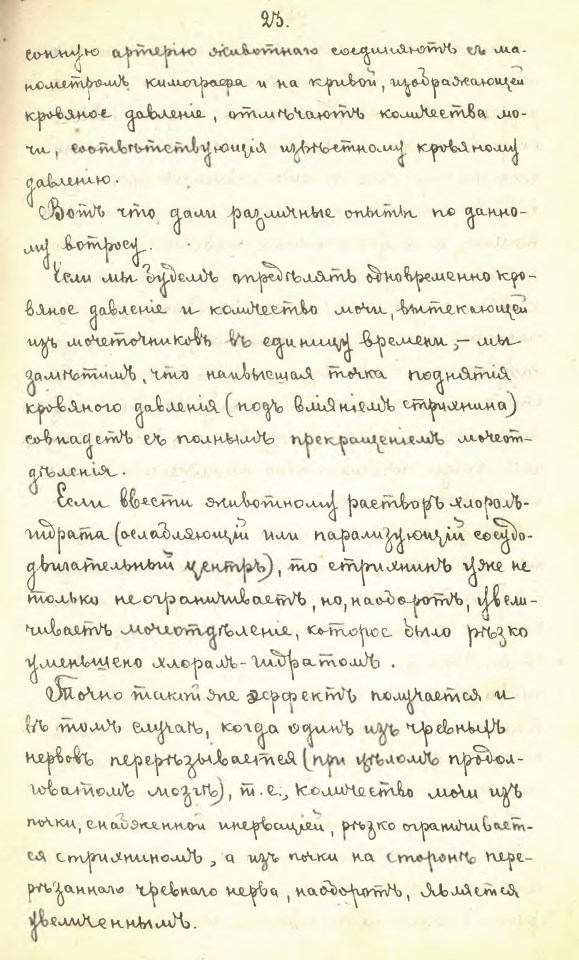 23.
сонную артерію животнаго соединяютъ съ ма-
нометромъ кимографа и на кривой, изображающей
кровяное давленіе, отмѣчаютъ количества мо-
чи, соотвѣтствующія извѣстному кровяному
давленію.
Вотъ что дали различные опыты по данно-
му вопросу.
Если мы будемъ опредѣлять одновременно кро-
вяное давленіе и количество мочи, вытекающей
изъ мочеточниковъ въ единицу времени, – мы
замѣтимъ, что наивысшая точка поднятія
кровяного давленія (подъ вліяніемъ стрихнина)
совпадетъ съ полнымъ прекращеніемъ мочеот-
дѣленія.
Если ввести животному растворъ хлорал-
гидрата (ослабляющій или парализующій сосудо-
двигательный центръ), то стрихнинъ уже не
только не ограничиваетъ, но, наоборотъ, увели-
чиваетъ мочеотдѣленіе, которое было рѣзко
уменьшено хлорал-гидратомъ.
Точно такой же эффектъ получается и
въ томъ случаѣ, когда одинъ изъ чревныхъ
нервовъ перерѣзывается (при цѣломъ продол-
говатомъ мозгѣ), т. е., количество мочи изъ
почки, снабженной инерваціей, рѣзко ограничивает-
ся стрихниномъ, а изъ почки на сторонѣ пере-
рѣзаннаго чревнаго нерва, наоборотъ, является
увеличеннымъ.